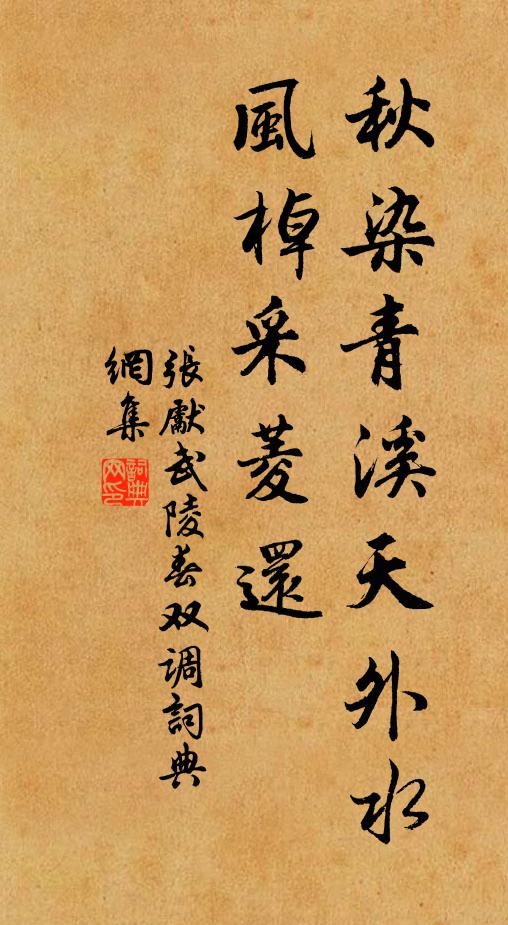 秋染青溪天外水
風棹采菱還
張獻武陵春双调詞典
網集
詞典
网印